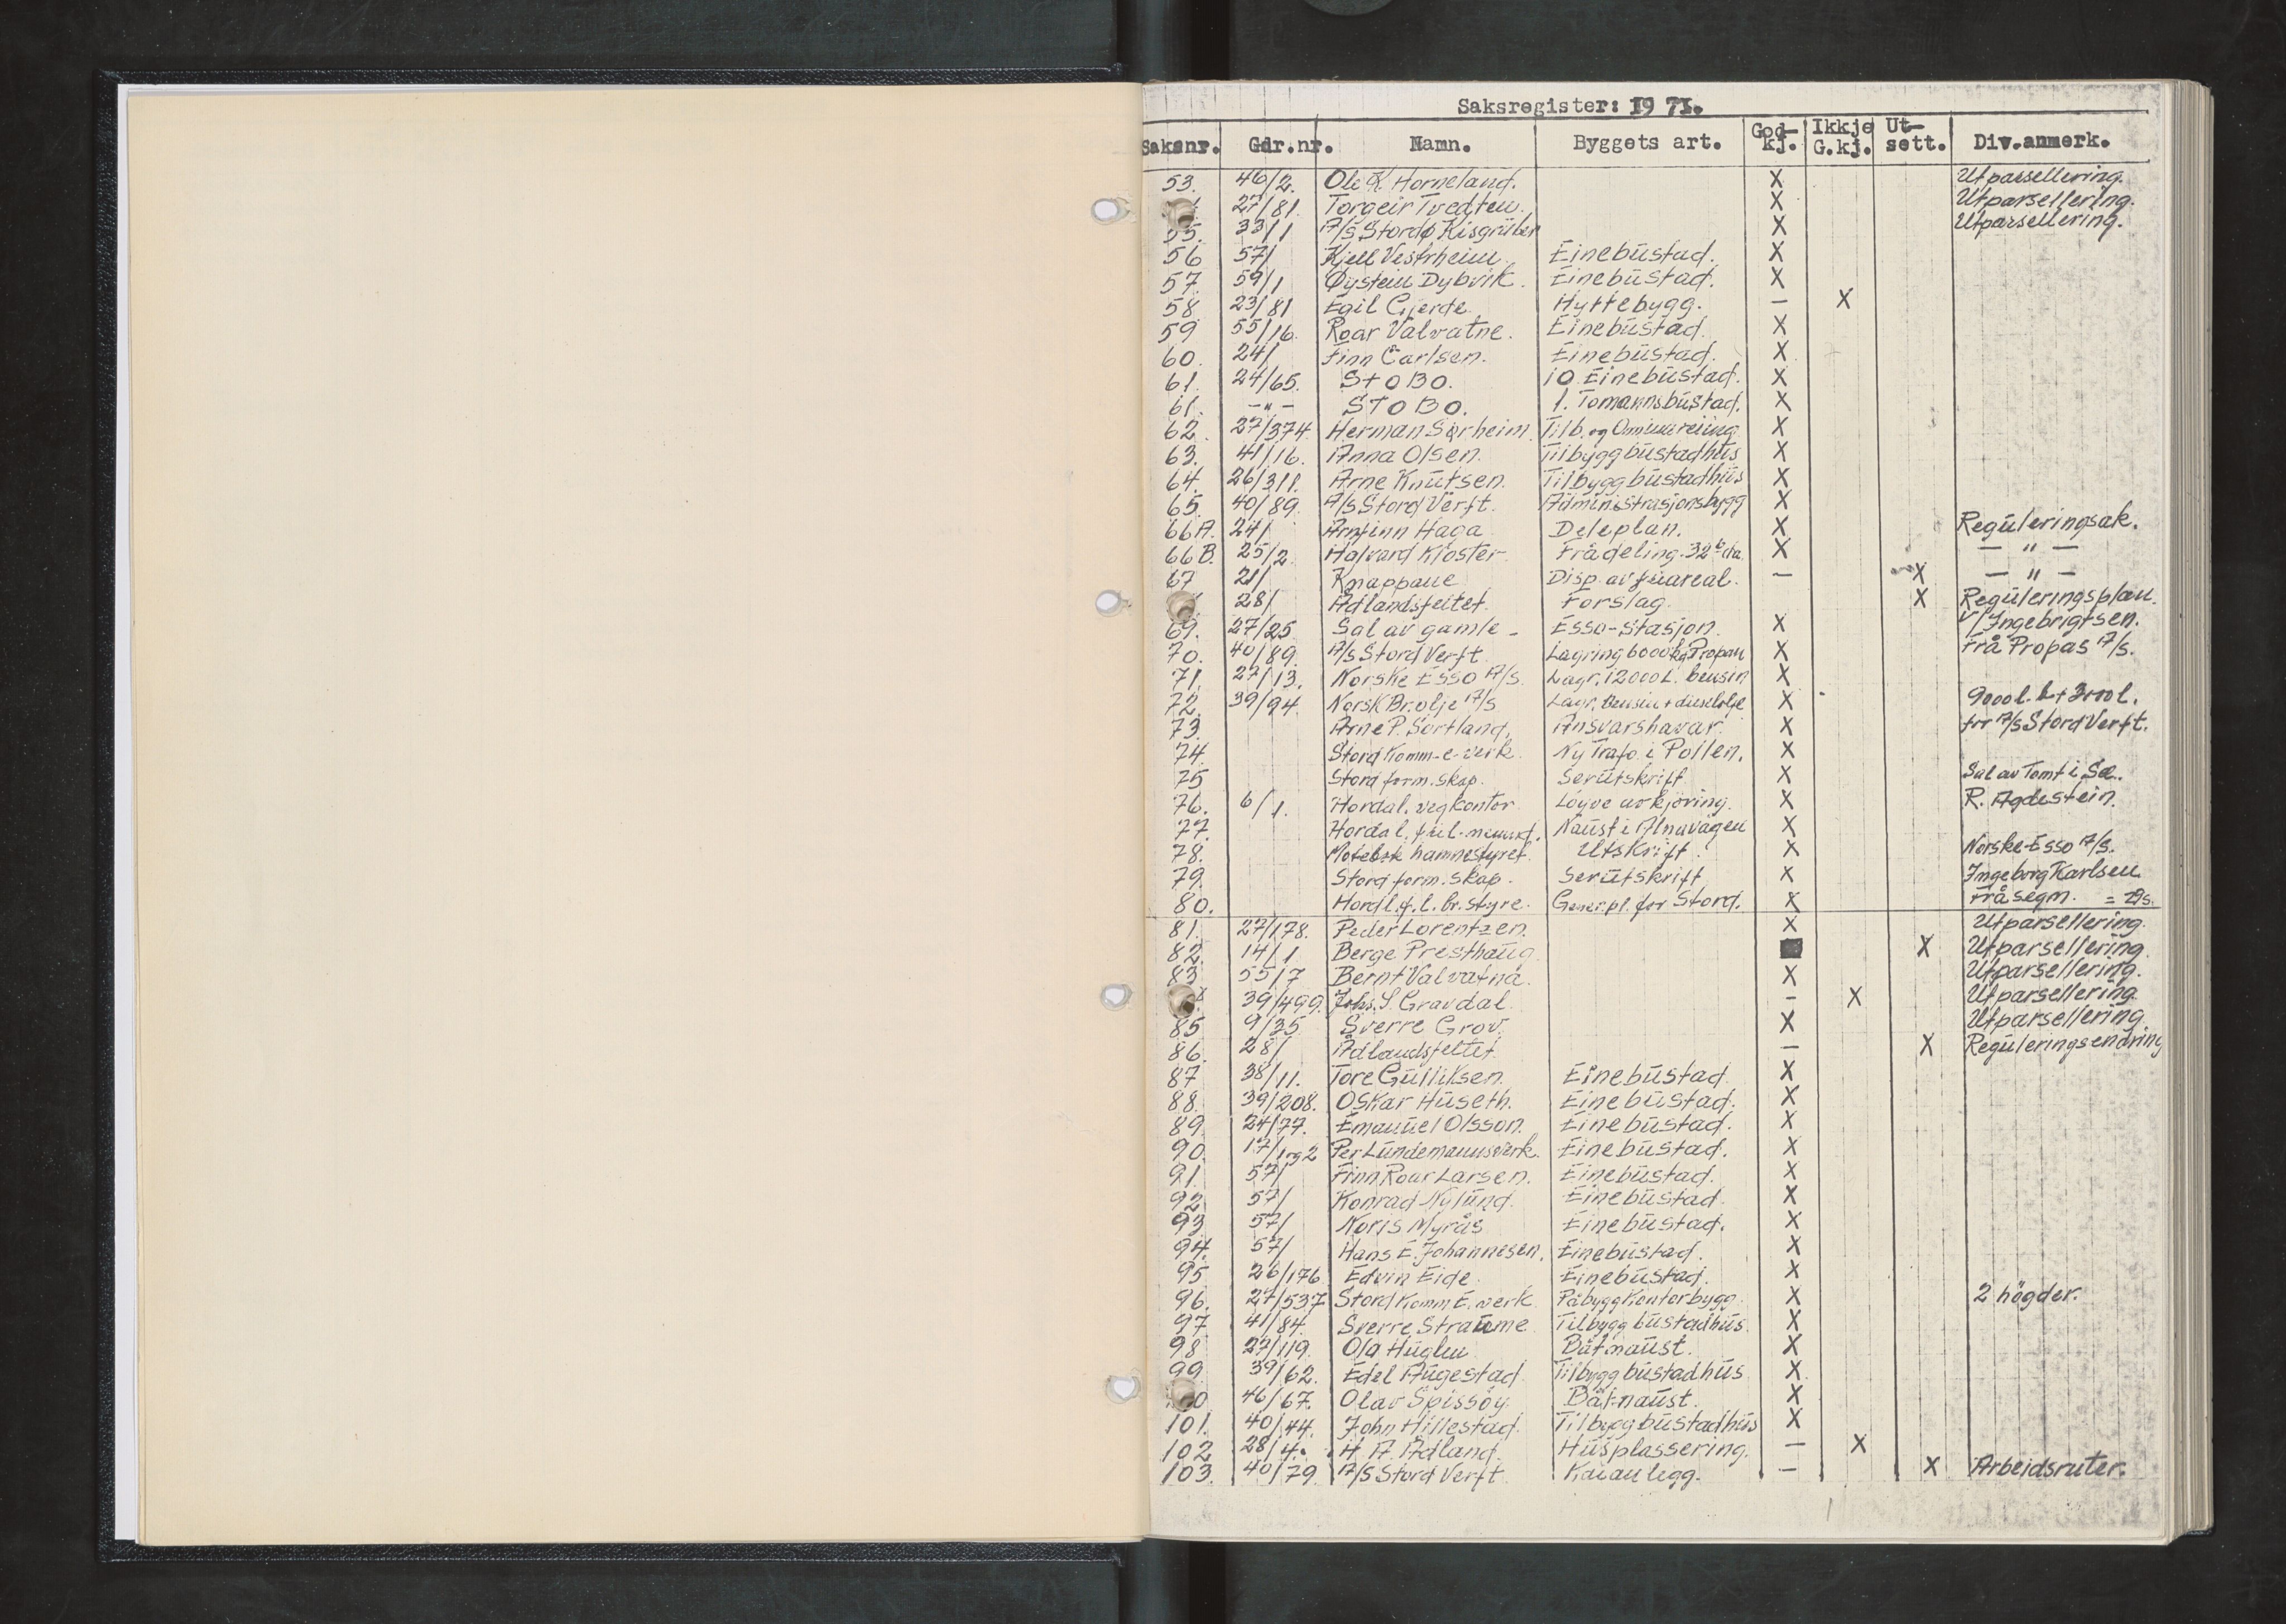 Saksregister: 1971.
Saksnr. Gdr.nr. Namn. Byggets art. God-kj. Ikkje G.kj. Ut-sett. Div.anmerk.
53. 46/2. Ole K. Horneland. X Utparsellering.
27/81. Torgeir Tvedten. X Utparsellering.
55. 33/1 A/S Stordø Kisgrüber X Utparsellering.
56 57/ Kjell Vestrheim Einebüstad. X
57 59/1 Øystein Dybvik. Einebüstad. X
58 23/81 Egil Gjerde. Hyttebygg. — X
59 55/16. Roar Valvatne. Einebüstad. X
60. 24/ Finn Carlsen. Einebüstad. X
61. 24/65. StoBo. 10 Einebüstad. X
61. —"— StoBo. 1. Tomannsbüstad. X
62. 27/374 Herman Sørheim. Tilb. og Ominnreiing X
63. 41/16. Anna Olsen. Tilbygg büstadhüs X
64. 26/311. Arne Knütsen. Tilbygg büstadhüs X
65. 40/89. A/S Stord Verft. Administrasjonsbygg X
66A. 24/ Arnfinn Haga Deleplan. X Regüleringsak.
66B. 25/2. Halvard Kloster Frådeling. 32 da. X — " —
67 21/ Knappane Disp. av areal. — X — " —
28/ Ådlandsfeltet. Forslag. X Regüleringsplan.
69. 27/25 Sal av gamle - Esso-Stasjon. X V/Ingebrigtsen.
70. 40/89. A/S Stord Verft Lagring 6000 kg Propan X Frå Propas A/S.
71. 27/13. Norske Esso A/S. Lagr. 12000 L. bensin X
72. 39/94. Norsk Br.olje A/S Lagr. bensin + dieselolje X 9000 l. b + 3000 l.
73. Arne P. Sortland. Ansvarshavar. X for A/S Stord Verft.
74. Stord Komm-e-verk. Ny Trafo i Pollen. X
75 Stord form.skap. Serütskrift X Sal av Tomt i Sæ.
76. 6/1. Hordal. vegkontor Löyve avkjöring. X R. Agdestein.
77. Hordal. Naüst i Ålnavågen X
78. hamnestyret. Utskrift. X Norske-Esso A/S.
79. Stord form.skap. Serütskrift X Ingeborg Karlsen
80. Hordl.f.l. br.styre. Gener.pl. for Stord. X Frå segm.
81. 27/178. Peder Lorentzen. X Utparsellering.
82. 14/1 Berge Presthaüg X Utparsellering.
83 55/7 Bernt Valvatna. X Utparsellering.
39/499. Johs. S. Gravdal. - X Utparsellering
85 9/35 Sverre Grov. X Utparsellering
86. 28/ Ådlandsfeltet. — X Regüleringsendring
87 38/11. Tore Gülliksen. Einebüstad X
88. 39/208. Oskar Hüseth. Einebüstad. X
89 24/77. Emanüel Olsson. Einebüstad. X
90. 17/1 og 2 Per Lündemannsverk. Einebüstad. X
91. 57/ Finn Roar Larsen. Einebüstad. X
92 57/ Konrad Nylünd. Einebüstad. X
93 57/ Noris Myrås Einebüstad. X
94. 57/ Hans E. Johannesen. Einebüstad. X
95 26/176 Edvin Eide. Einebüstad. X
96. 27/537 Stord Komm E. verk. Påbygg Kontorbygg. X 2 högder.
97. 41/84. Sverre Straüme Tilbygg büstadhüs. X
98 27/119. Ola Hüglen Båtnaüst. X
99 39/62. Edel Aügestad Tilbygg büstadhüs X
100 46/67. Olav Spissöy. Båtnaüst. X
101. 40/44. John Hillestad. Tilbygg büstadhüs X
102 28/4. H. A. Ådland. Hüsplassering. — X
103. 40/79. A/S Stord Verft Kaianlegg. — X Arbeidsruter.